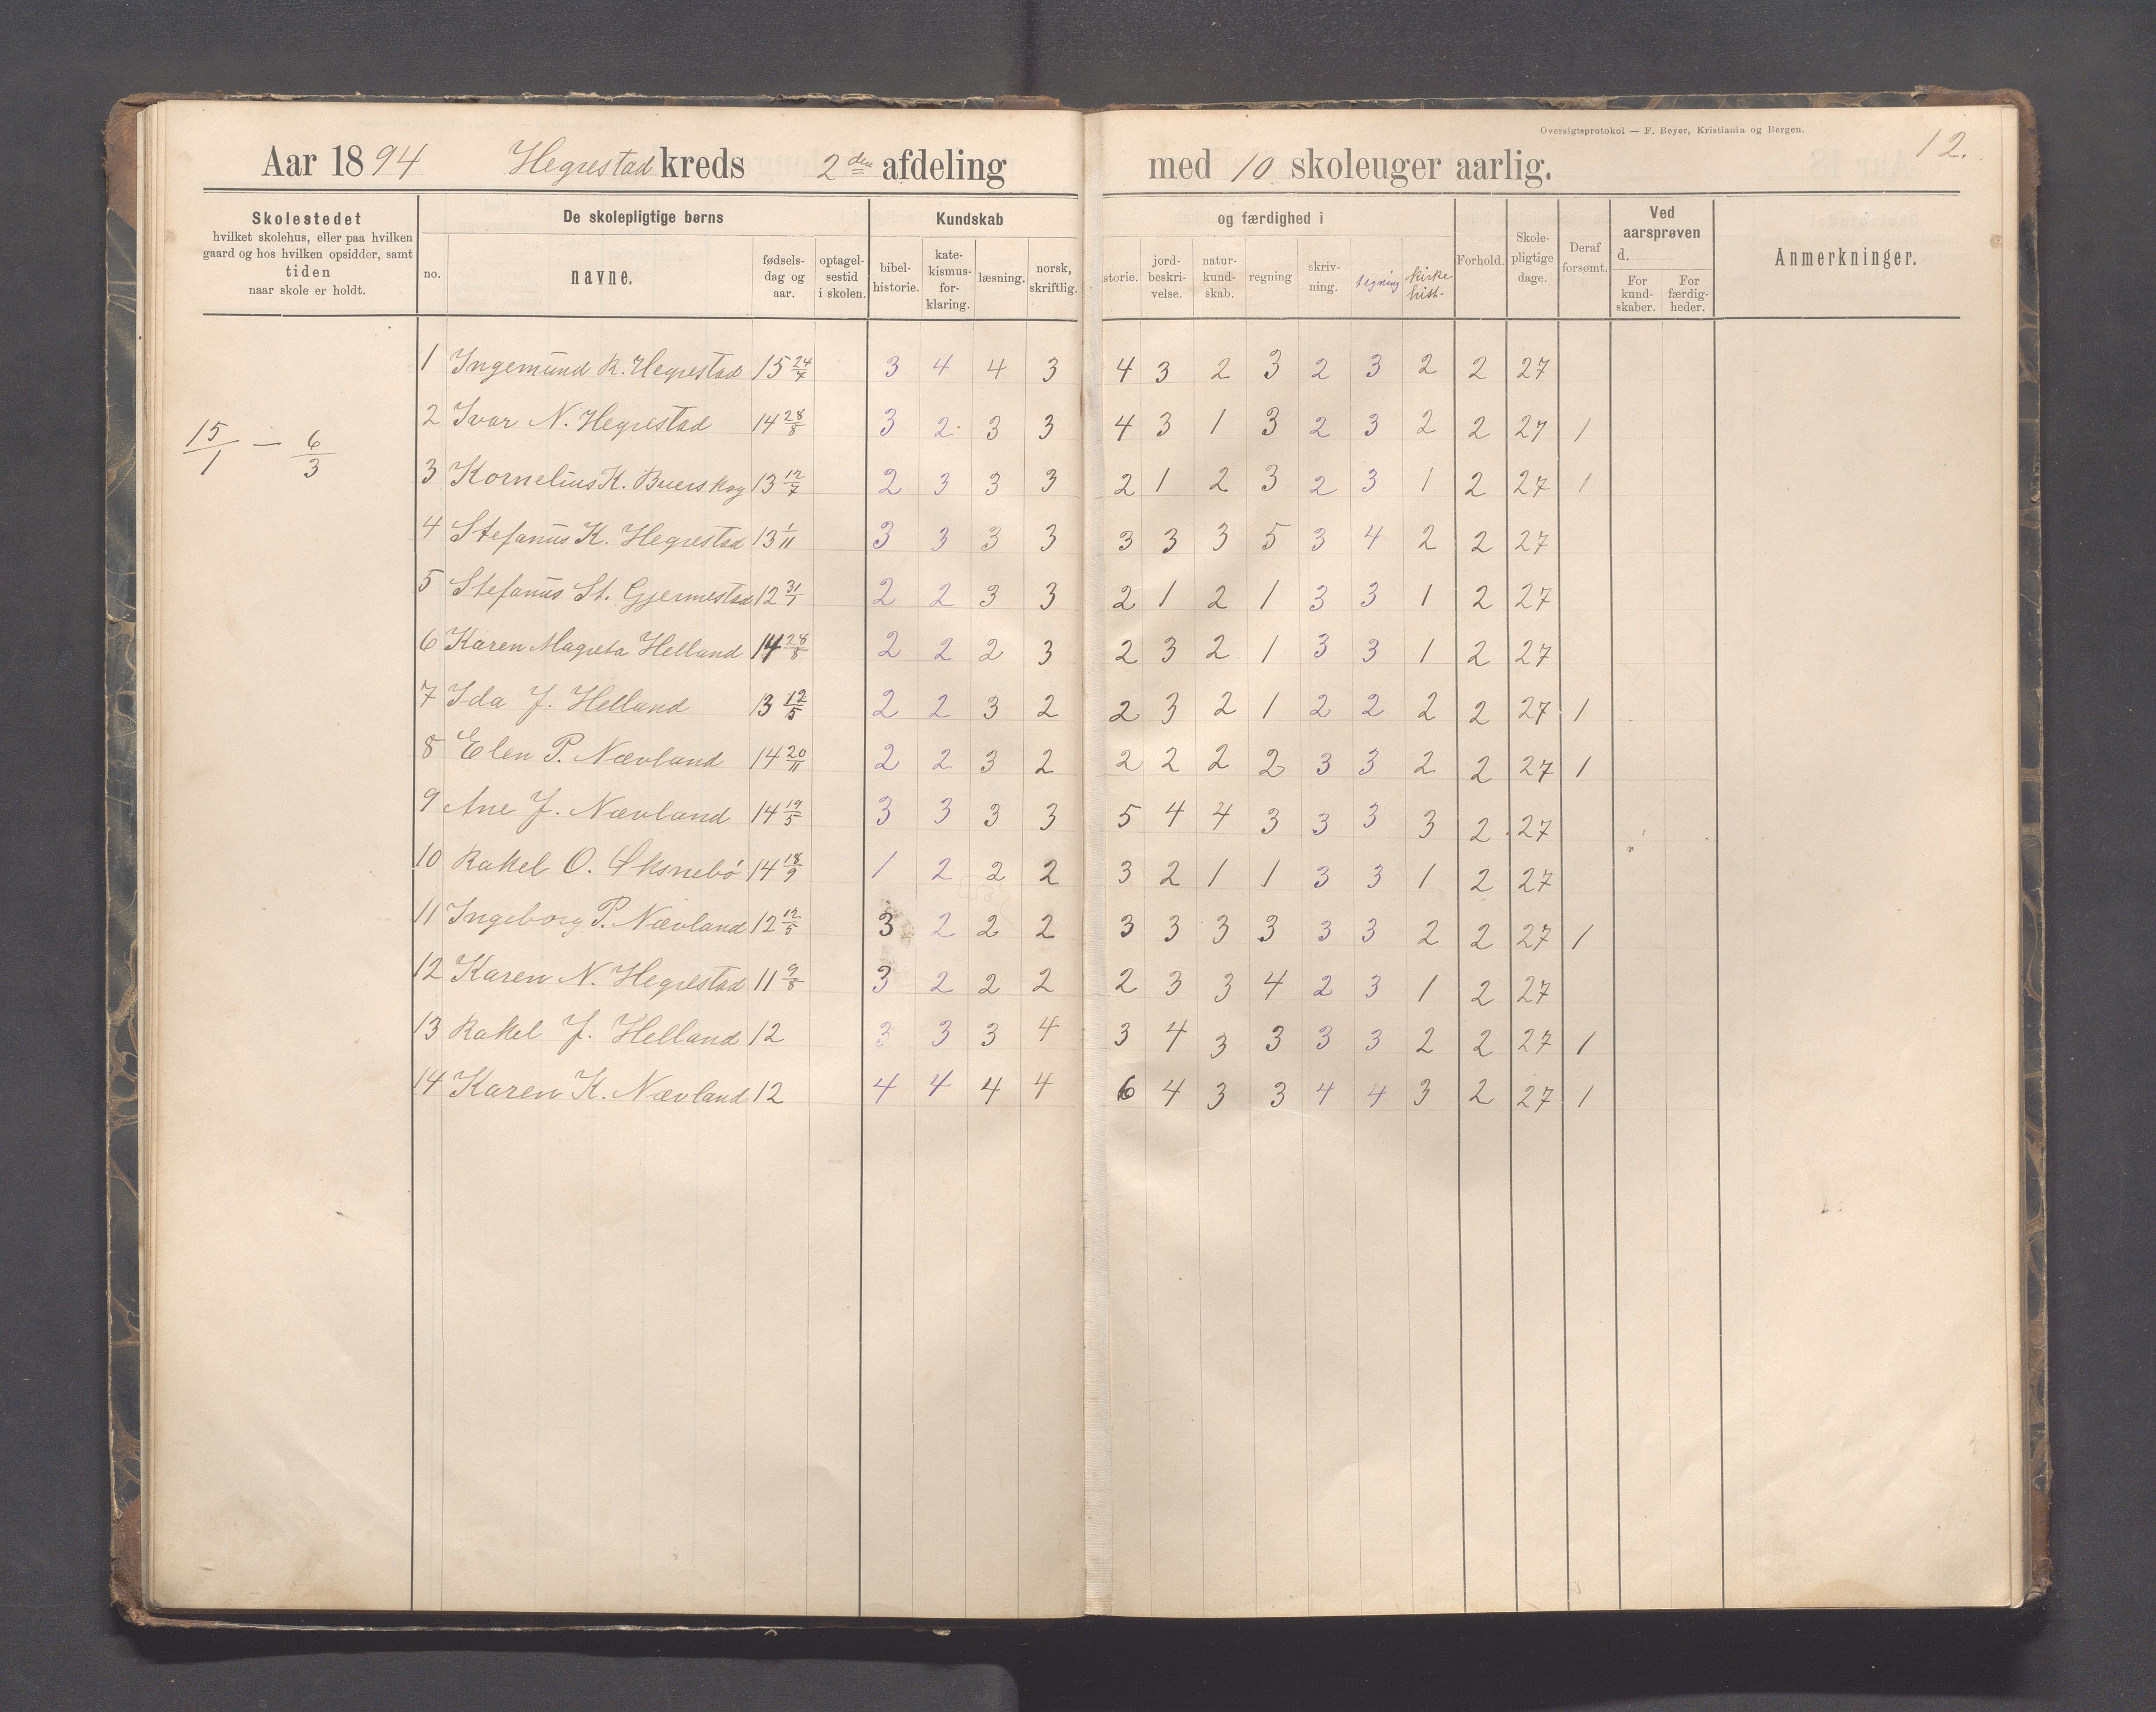 Oversigtsprotokol — F. Beyer, Kristiania og Bergen.
12.
Aar 1894 Hegrestad kreds 2den afdeling med 10 skoleuger aarlig.
Skolestedet hvilket skolehus, eller paa hvilken gaard og hos hvilken opsidder, samt tiden naar skole er holdt.
De skolepligtige børns
no. navne. fødsels-dag og aar. optagel-sestid i skolen.
Kundskab og færdighed i
bibel-historie. kate-kismus-for-klaring. læsning. norsk, skriftlig. storie. jord-beskri-velse. natur-kund-skab. regning skriv-ning. tegning kirkehist.
Forhold. Skole-pligtige dage. Deraf forsømt.
Ved aarsprøven d. For kund-skaber. For færdig-heder.
Anmerkninger.
15/1 — 6/3
1 Ingemund R. Hegrestad 15 24/7 3 4 4 3 4 3 2 3 2 3 2 2 27
2 Ivar N. Hegrestad 14 28/8 3 2 3 3 4 3 1 3 2 3 2 2 27 1
3 Kornelius K. Buerskog 13 12/7 2 3 3 3 2 1 2 3 2 3 1 2 27 1
4 Stefanus K. Hegrestad 13 1/11 3 3 3 3 3 3 3 5 3 4 2 2 27
5 Stefanus St. Gjermestad 12 31/7 2 2 3 3 2 1 2 1 3 3 1 2 27
6 Karen Magreta Helland 14 28/8 2 2 2 3 2 3 2 1 3 3 1 2 27
7 Ida J. Helland 13 12/5 2 2 3 2 2 3 2 1 2 2 2 2 27 1
8 Elen P. Nævland 14 20/11 2 2 3 2 2 2 2 2 3 3 2 2 27 1
9 Ane J. Nævland 14 19/5 3 3 3 3 5 4 4 3 3 3 3 2 27
10 Rakel O. Øksnebö 14 18/9 1 2 2 2 3 2 1 1 3 3 1 2 27
11 Ingeborg P. Nævland 12 12/5 3 2 2 2 3 3 3 3 3 3 2 2 27 1
12 Karen N. Hegrestad 11 9/8 3 2 2 2 2 3 3 4 2 3 1 2 27
13 Rakel J. Helland 12 3 3 3 4 3 4 3 3 3 3 2 2 27 1
14 Karen K. Nævland 12 4 4 4 4 6 4 3 3 4 4 3 2 27 1